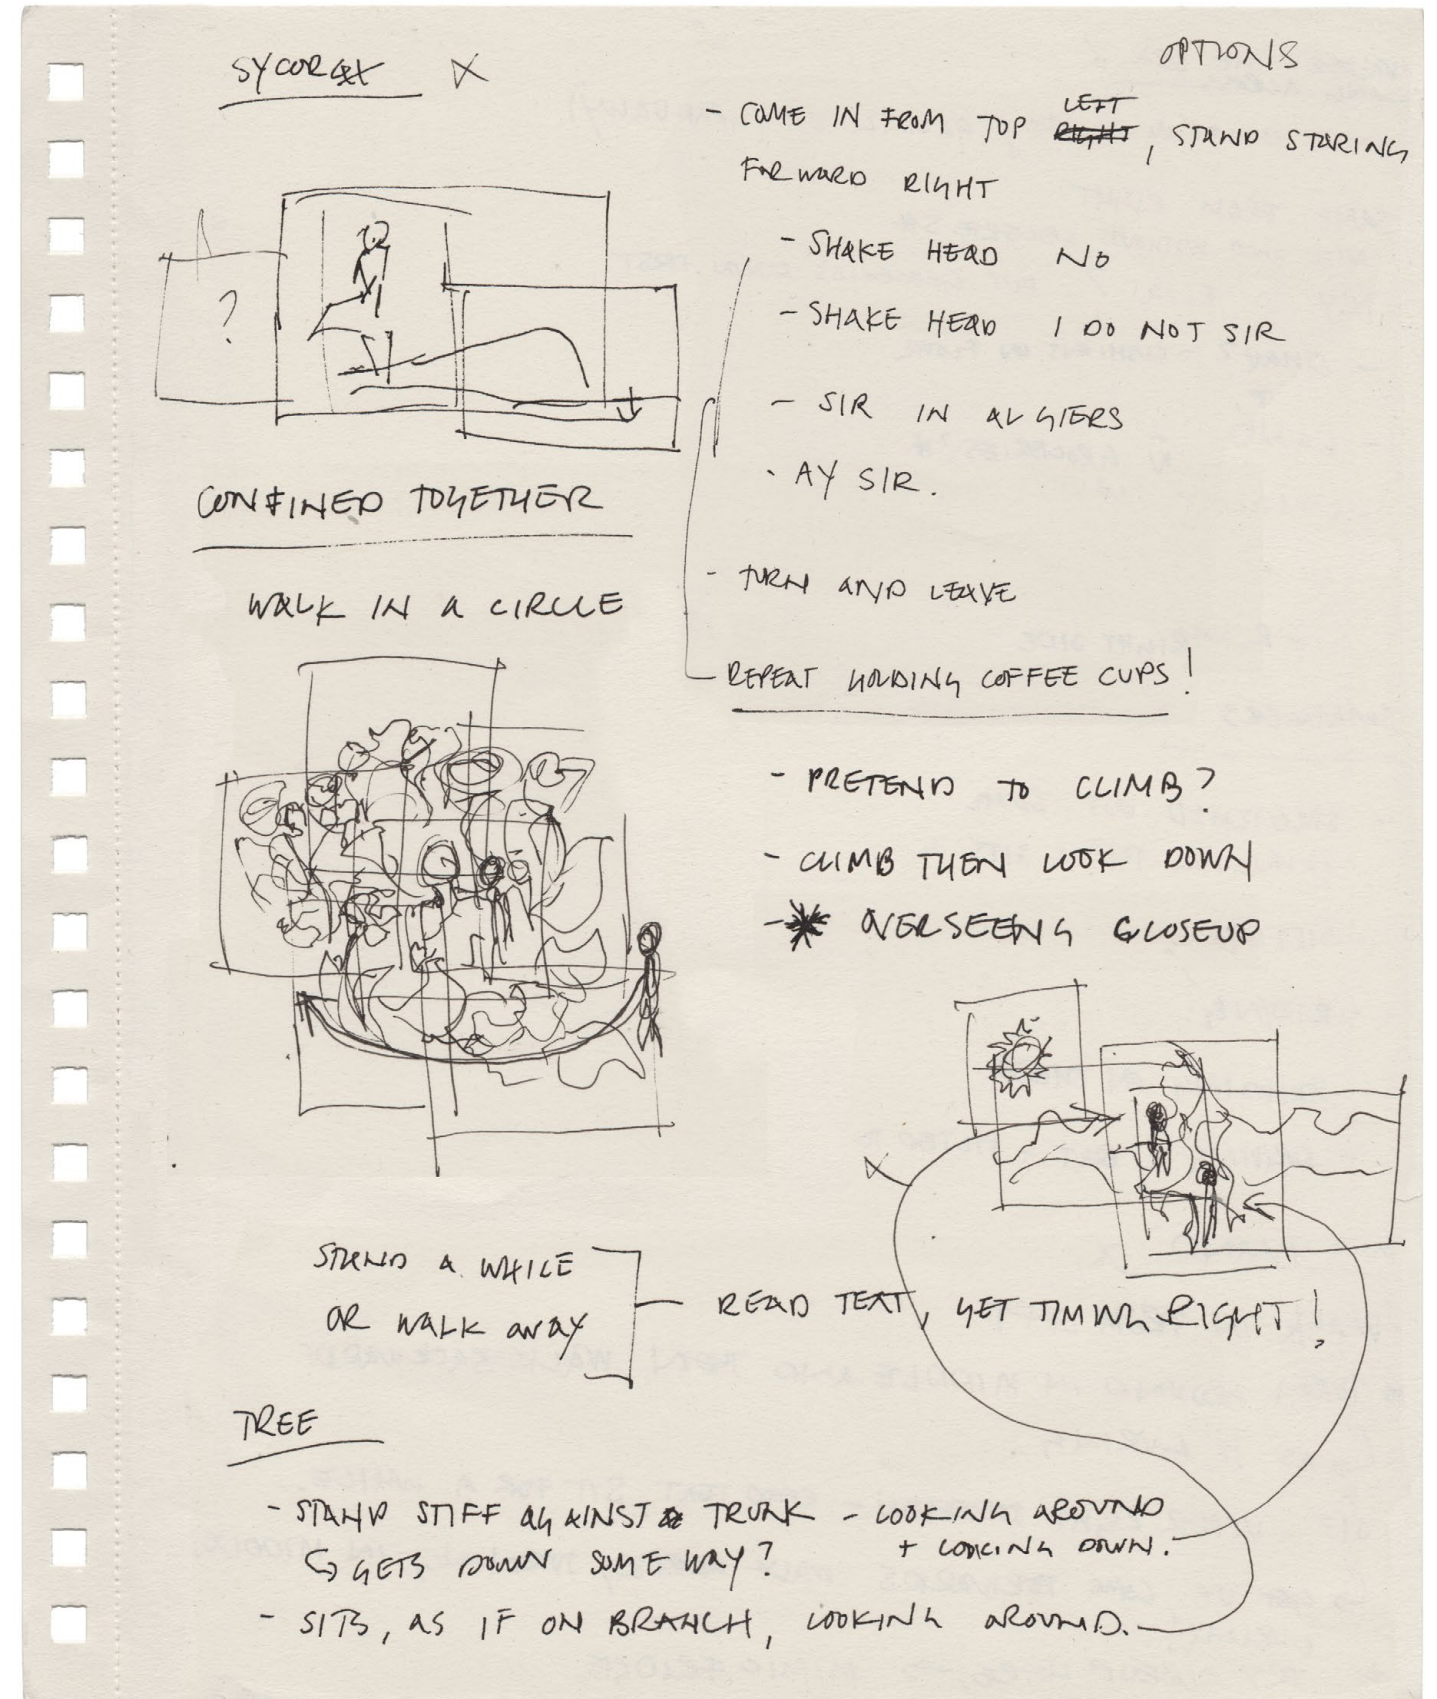 SYCORAX
OPTIONS
- COME IN FROM TOP LEFT RIGHT, STAND STARING
FORWARD RIGHT
- SHAKE HEAD NO
- SHAKE HEAD I DO NOT SIR
- SIR IN ALGIERS
- AY SIR.
- TURN AND LEAVE
REPEAT HOLDING COFFEE CUPS!
?
CONFINED TOGETHER
WALK IN A CIRCLE
- PRETEND TO CLIMB?
- CLIMB THEN LOOK DOWN
- * OVERSEEING CLOSEUP
STAND A WHILE
OR WALK AWAY
READ TEXT, GET TIMING RIGHT!
TREE
- STAND STIFF AGAINST TRUNK - LOOKING AROUND
+ LOOKING DOWN.
↳ GETS DOWN SOME WAY?
- SITS, AS IF ON BRANCH, LOOKING AROUND.